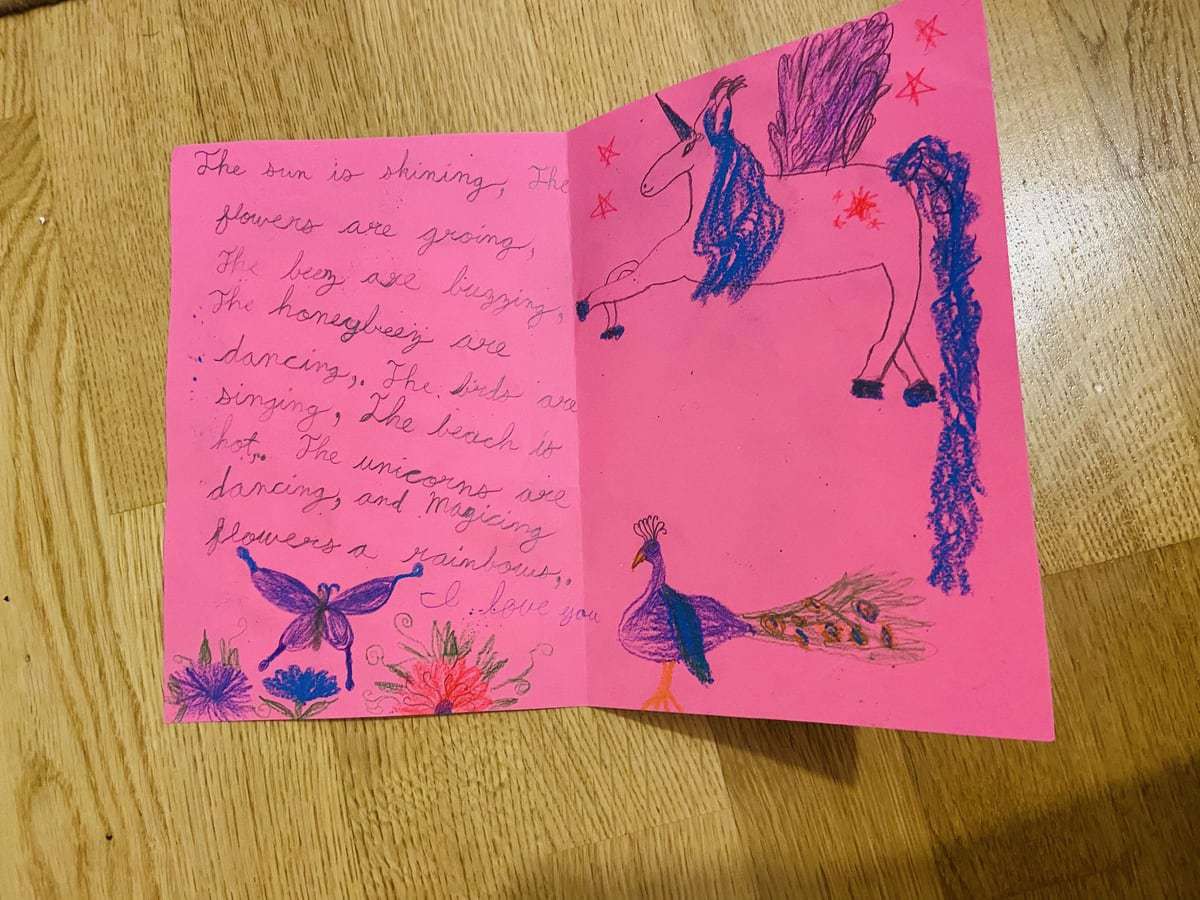 The sun is shining, The
flowers are groing,
The beez are buzzing,
The honeybeez are
dancing,. The birds are
singing, The beach is
hot,. The unicorns are
dancing, and Magicing
flowers a rainbows,.
I love you